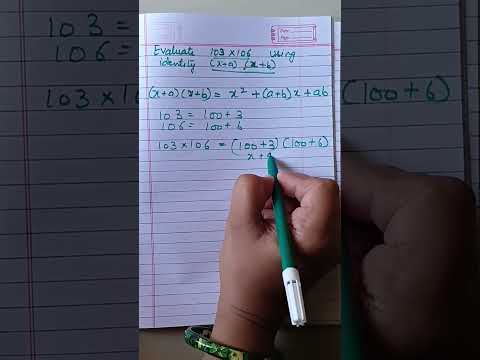 Evaluate 103 × 106 using
identity (x+a) (x+b)
(x+a) (x+b) = x² + (a+b)x + ab
103 = 100 + 3
106 = 100 + 6
103 × 106 = (100 + 3) (100 + 6)
x + a